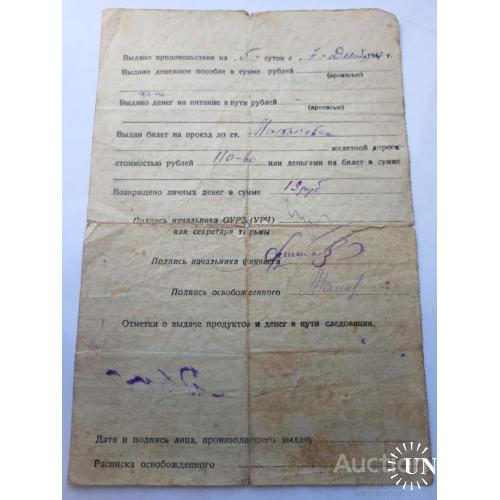 Выдано продовольствие на 5 суток с 7 194 г.
Выдано денежное пособие в сумме рублей
(прописью)
Выдано денег на питание в пути рублей
(прописью)
Выдан билет на проезд до ст.
железной дороги
стоимостью рублей 110-00 или деньгами на билет в сумме
Возвращено личных денег в сумме 19 руб
Подпись начальника ОУРЗ (УРЧ)
или секретаря тюрьмы
Подпись начальника финчасти
Подпись освобожденного
Отметки о выдаче продуктов и денег в пути следования.
Дата и подпись лица, производившего выдачу
Расписка освобожденного
UN